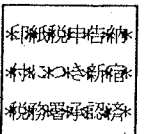 印紙税申告納
付につき新宿
税務署承認済